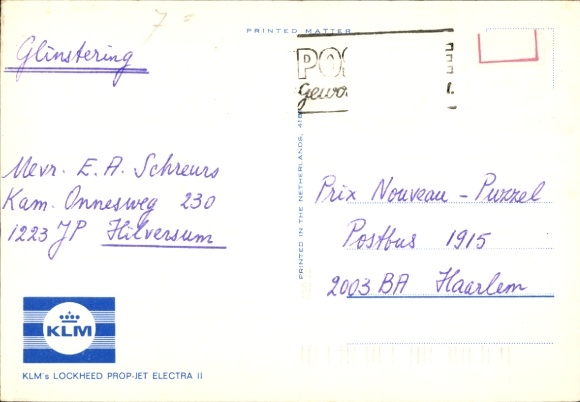 7 =
PRINTED MATTER
Glinstering
PO
Gewo
Mevr. E. A. Schreurs
Kam. Onnesweg 230
1223 JP Hilversum
Prix Nouveau - Puzzel
Postbus 1915
2003 BA Haarlem
PRINTED IN THE NETHERLANDS, 418
KLM
KLM's LOCKHEED PROP-JET ELECTRA II